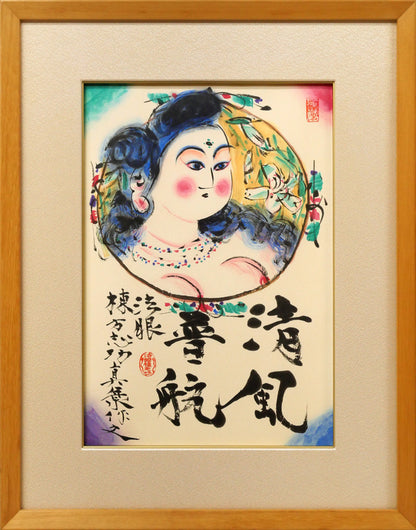 清風
善航
法眼
棟方志功真作